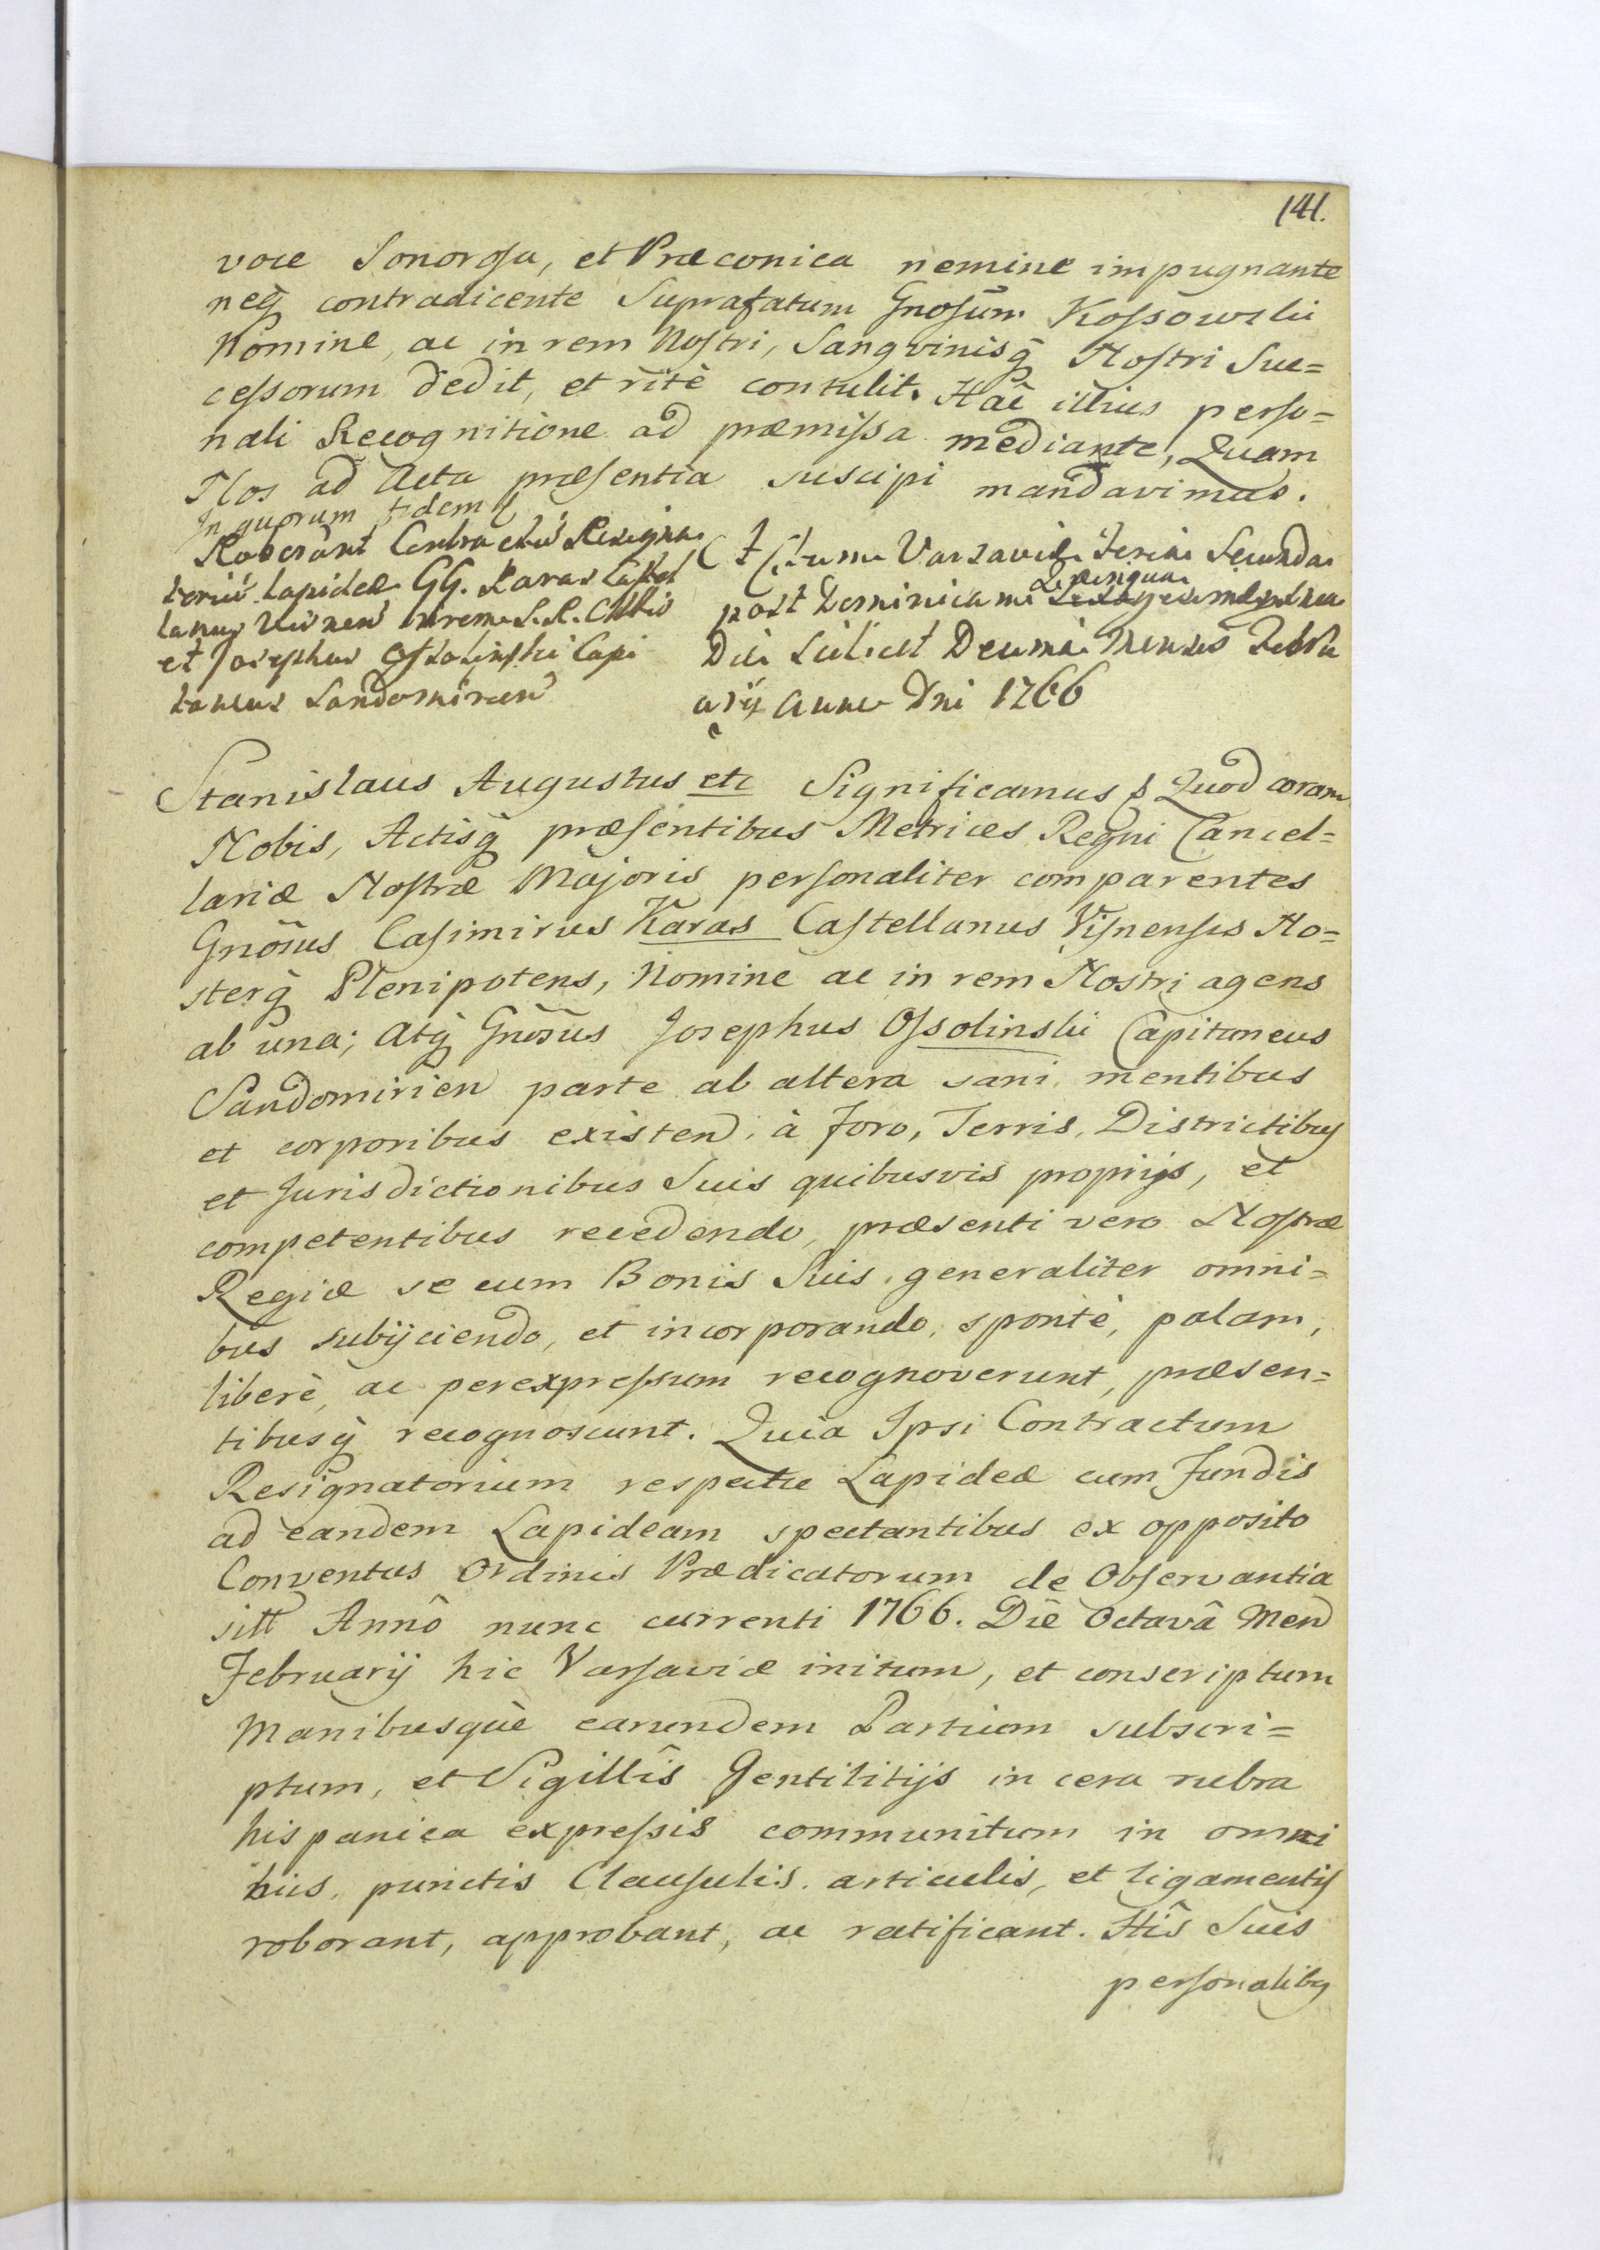 141.
voce Sonorosa, et Præconica nemine impugnante
neq̃ contradicente Suprafatum Gnosũm Kossowski
Nomine, ac in rem Nostri, Sangvinisq̃ Nostri Suc=
cessorum dedit, et ritè contulit. Hac illius perso=
nali Recognitione ad præmissa mediante, Quam
Nos ad Acta præsentia suscipi mandavimus.
In quorum fidem
Roborant Contractũ Resigna
toriũ Lapideæ GG. Karas Castel
lanus Visnen in rem S. R. Mttis
et Josephus Ossolinski Capi
taneus Sandomirien
Actum Varsaviæ Feria Secunda
post Dominicam Quinqua
gesimæ
Die Scilicet Decima Mensis Febru
arij Anno Dni 1766
Stanislaus Augustus etc Significamus Quod coram
Nobis, Actisq̃ præsentibus Metrices Regni Cancel=
lariæ Nostræ Majoris personaliter comparentes
Gnõsus Casimirus Karas Castellanus Visnensis No=
sterq̃ Plenipotens, Nomine ac in rem Nostri agens
ab una; Atq̃ Gnõsus Josephus Ossolinski Capitaneus
Sandomirien parte ab altera sani mentibus
et corporibus existen, à Foro, Terris, Districtibus
et Jurisdictionibus Suis quibusvis proprijs, et
competentibus recedendo, præsenti vero Nostræ
Regiæ se cum Bonis Suis generaliter omni=
bus subijciendo, et incorporando, spontè, palam,
liberè, ac perexpressum recognoverunt, præsen=
tibusq̃ recognoscunt. Quia Ipsi Contractum
Resignatorium respectu Lapideæ cum Fundis
ad eandem Lapideam spectantibus ex opposito
Conventus Ordinis Prædicatorum de Observantia
sitt Annô nunc currenti 1766. Die Octavâ Men
Februarij hic Varsaviæ initum, et conscriptum
Manibusquè earundem Partium subscri=
ptum, et Sigillîs Gentilitijs in cera rubra
hispanica expressis communitum in omni
bus, punctis Clausulis, articulis, et ligamentis
roborant, approbant, ac ratificant. Hîs Suis
personalibus